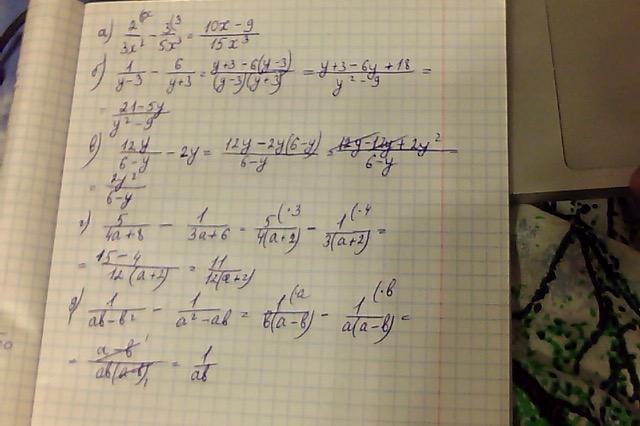 а) 2(5x / 3x² - 3(3 / 5x³ = 10x - 9 / 15x³
б) 1 / y-3 - 6 / y+3 = y+3-6(y-3) / (y-3)(y+3) = y+3-6y+18 / y²-9 =
= 21-5y / y²-9
в) 12y / 6-y - 2y = 12y-2y(6-y) / 6-y = 12y-12y+2y² / 6-y =
= 2y² / 6-y
г) 5 / 4a+8 - 1 / 3a+6 = 5(·3 / 4(a+2) - 1(·4 / 3(a+2) =
= 15-4 / 12(a+2) = 11 / 12(a+2)
д) 1 / ab-b² - 1 / a²-ab = 1(·a / b(a-b) - 1(·b / a(a-b) =
= a-b 1 / ab(a-b) 1 = 1 / ab